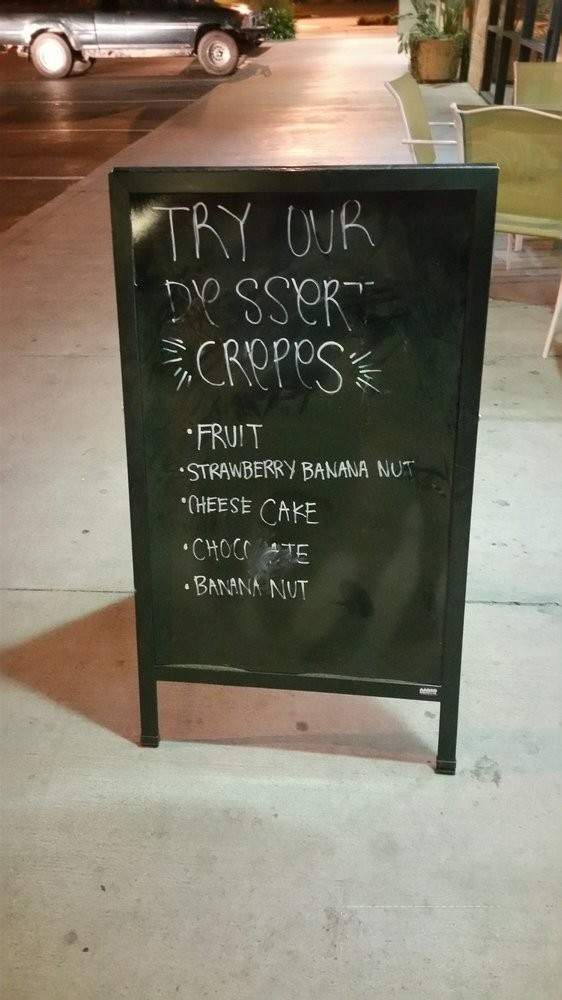 TRY OUR
DeSSerT
CrePeS
• FRUIT
• STRAWBERRY BANANA NUT
• CHEESE CAKE
• BANANA NUT